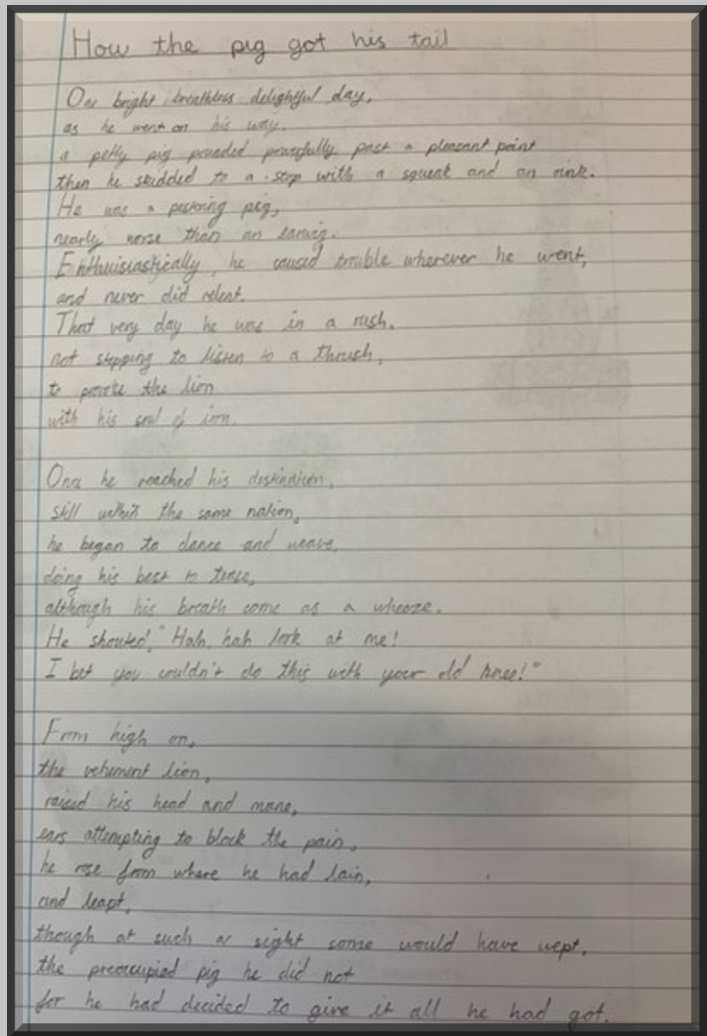 How the pig got his tail
One bright breathless delightful day,
as he went on his way.
a petty pig pounded peacefully past a pleasant point
then he skidded to a stop with a squeak and an oink.
He was a pestering pig,
nearly worse than an earwig.
Enthuisiastically, he caused trouble wherever he went,
and never did relent.
That very day he was in a rush,
not stopping to listen to a thrush,
to provoke the lion
with his soul of iron.
Once he reached his destination,
still within the same nation,
he began to dance and weave,
doing his best to tease,
although his breath come as a wheeze.
He shouted, "Hah, hah look at me!
I bet you couldn't do this with your old knee!"
From high on,
the vehement lion,
raised his head and mane,
ears attempting to block the pain,
he rose from where he had lain,
and leapt,
though at such a sight some would have wept,
the preoccupied pig he did not
for he had decided to give it all he had got.